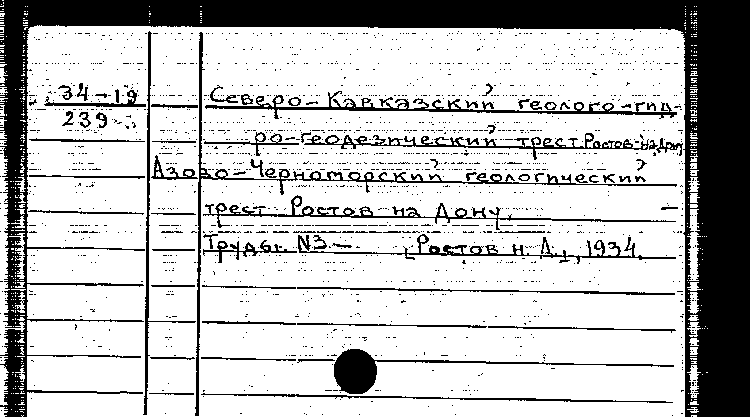 34-19
239
Северо-Кавказский геолого-гид-
ро-геодезический трест. Ростов-на-Дону
Азово-Черноморский геологический
трест Ростов на Дону.
Труды. №3.— [Ростов н. Д.], 1934.